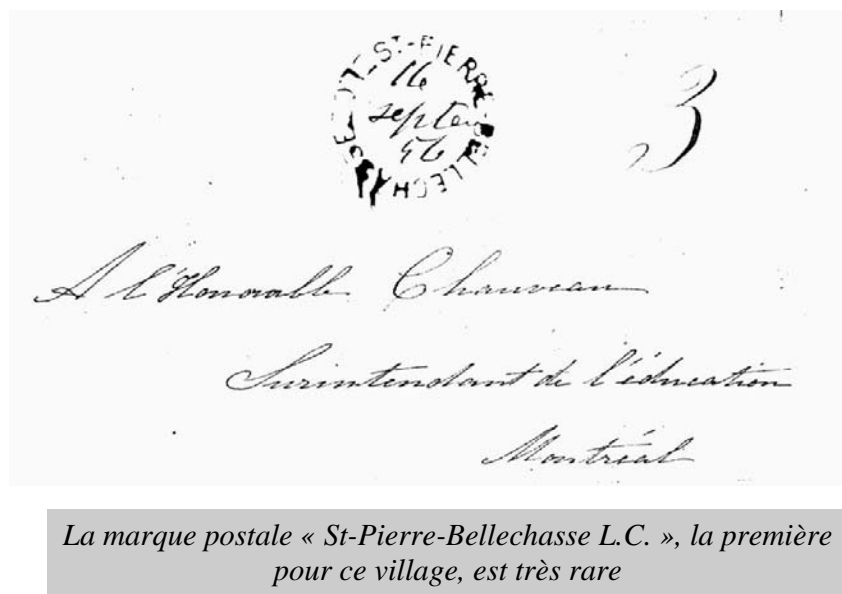 ST-PIERRE-BELLECHASSE
16
septem
56
3
A l'Honorable Chauveau
Surintendant de l'éducation
Montréal
La marque postale « St-Pierre-Bellechasse L.C. », la première
pour ce village, est très rare